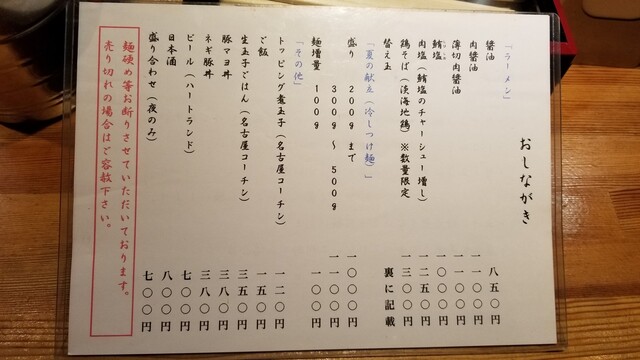 おしながき
「ラーメン」
醤油 八五〇円
肉醤油 一一〇〇円
薄切肉醤油 一一〇〇円
鮪塩 一〇〇〇円
肉塩(鮪塩のチャーシュー増し) 一二五〇円
鶏そば(淡海地鶏)※数量限定 一三〇〇円
替え玉 裏に記載
「夏の献立(冷しつけ麺)」
盛り 200gまで 一〇〇〇円
300g〜500g 一一〇〇円
麺増量 100g 一〇〇円
「その他」
トッピング煮玉子(名古屋コーチン) 一二〇円
ご飯 一五〇円
生玉子ごはん(名古屋コーチン) 三五〇円
豚マヨ丼 三八〇円
ネギ豚丼 三八〇円
ビール(ハートランド) 七〇〇円
日本酒 八〇〇円
盛り合わせ(夜のみ) 七〇〇円
麺硬め等お断りさせていただいております。
売り切れの場合はご容赦下さい。